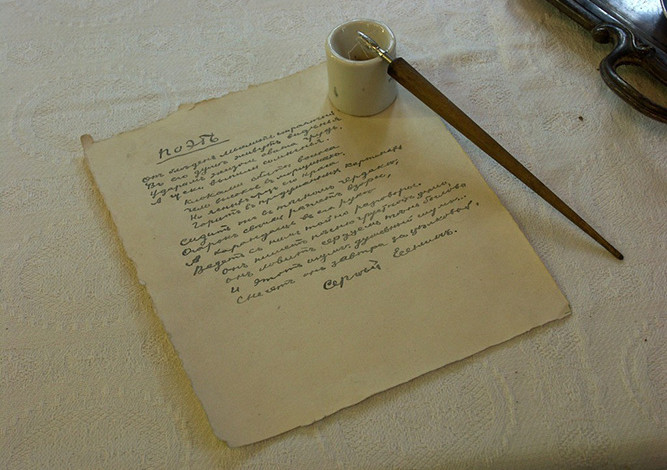 ПОЭТЪ
Онъ блѣденъ. Мыслитъ страшный путь.
Въ его душѣ живутъ видѣнья.
Ударомъ жизни вбита грудь,
А щеки выпили сомненья.
Клоками сбиты волоса,
Чело высокое въ морщинахъ,
Но ясныхъ грезъ его краса
Горитъ въ продуманныхъ картинахъ.
Сидитъ онъ въ тѣсномъ чердакѣ,
Огарокъ свѣчки рѣжетъ взоръ,
А карандашъ въ его рукѣ
Ведетъ съ нимъ тайно разговоръ.
Онъ пишетъ пѣсню грустныхъ думъ,
Онъ ловитъ сердцемъ тѣнь былого
И этотъ шумъ, душевный шумъ..
Снесетъ онъ завтра за цѣлковый.
Сергѣй Есенинъ.